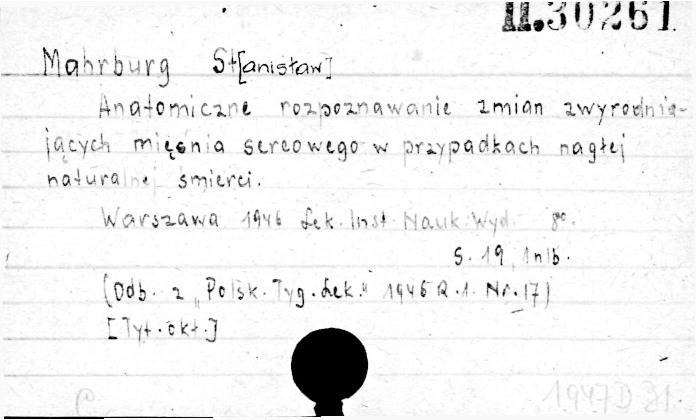 II.30261
Mahrburg St[anisław]
Anatomiczne rozpoznawanie zmian zwyrodnia-
jących mięśnia sercowego w przypadkach nagłej
naturalnej śmierci.
Warszawa 1946 Lek. Inst. Nauk. Wyd. 8º.
s. 19, 1 nlb.
(Odb. z "Polsk. Tyg. Lek." 1946 R. 1. Nr. 17)
[Tyt. okł.]
C
1947 D 31.